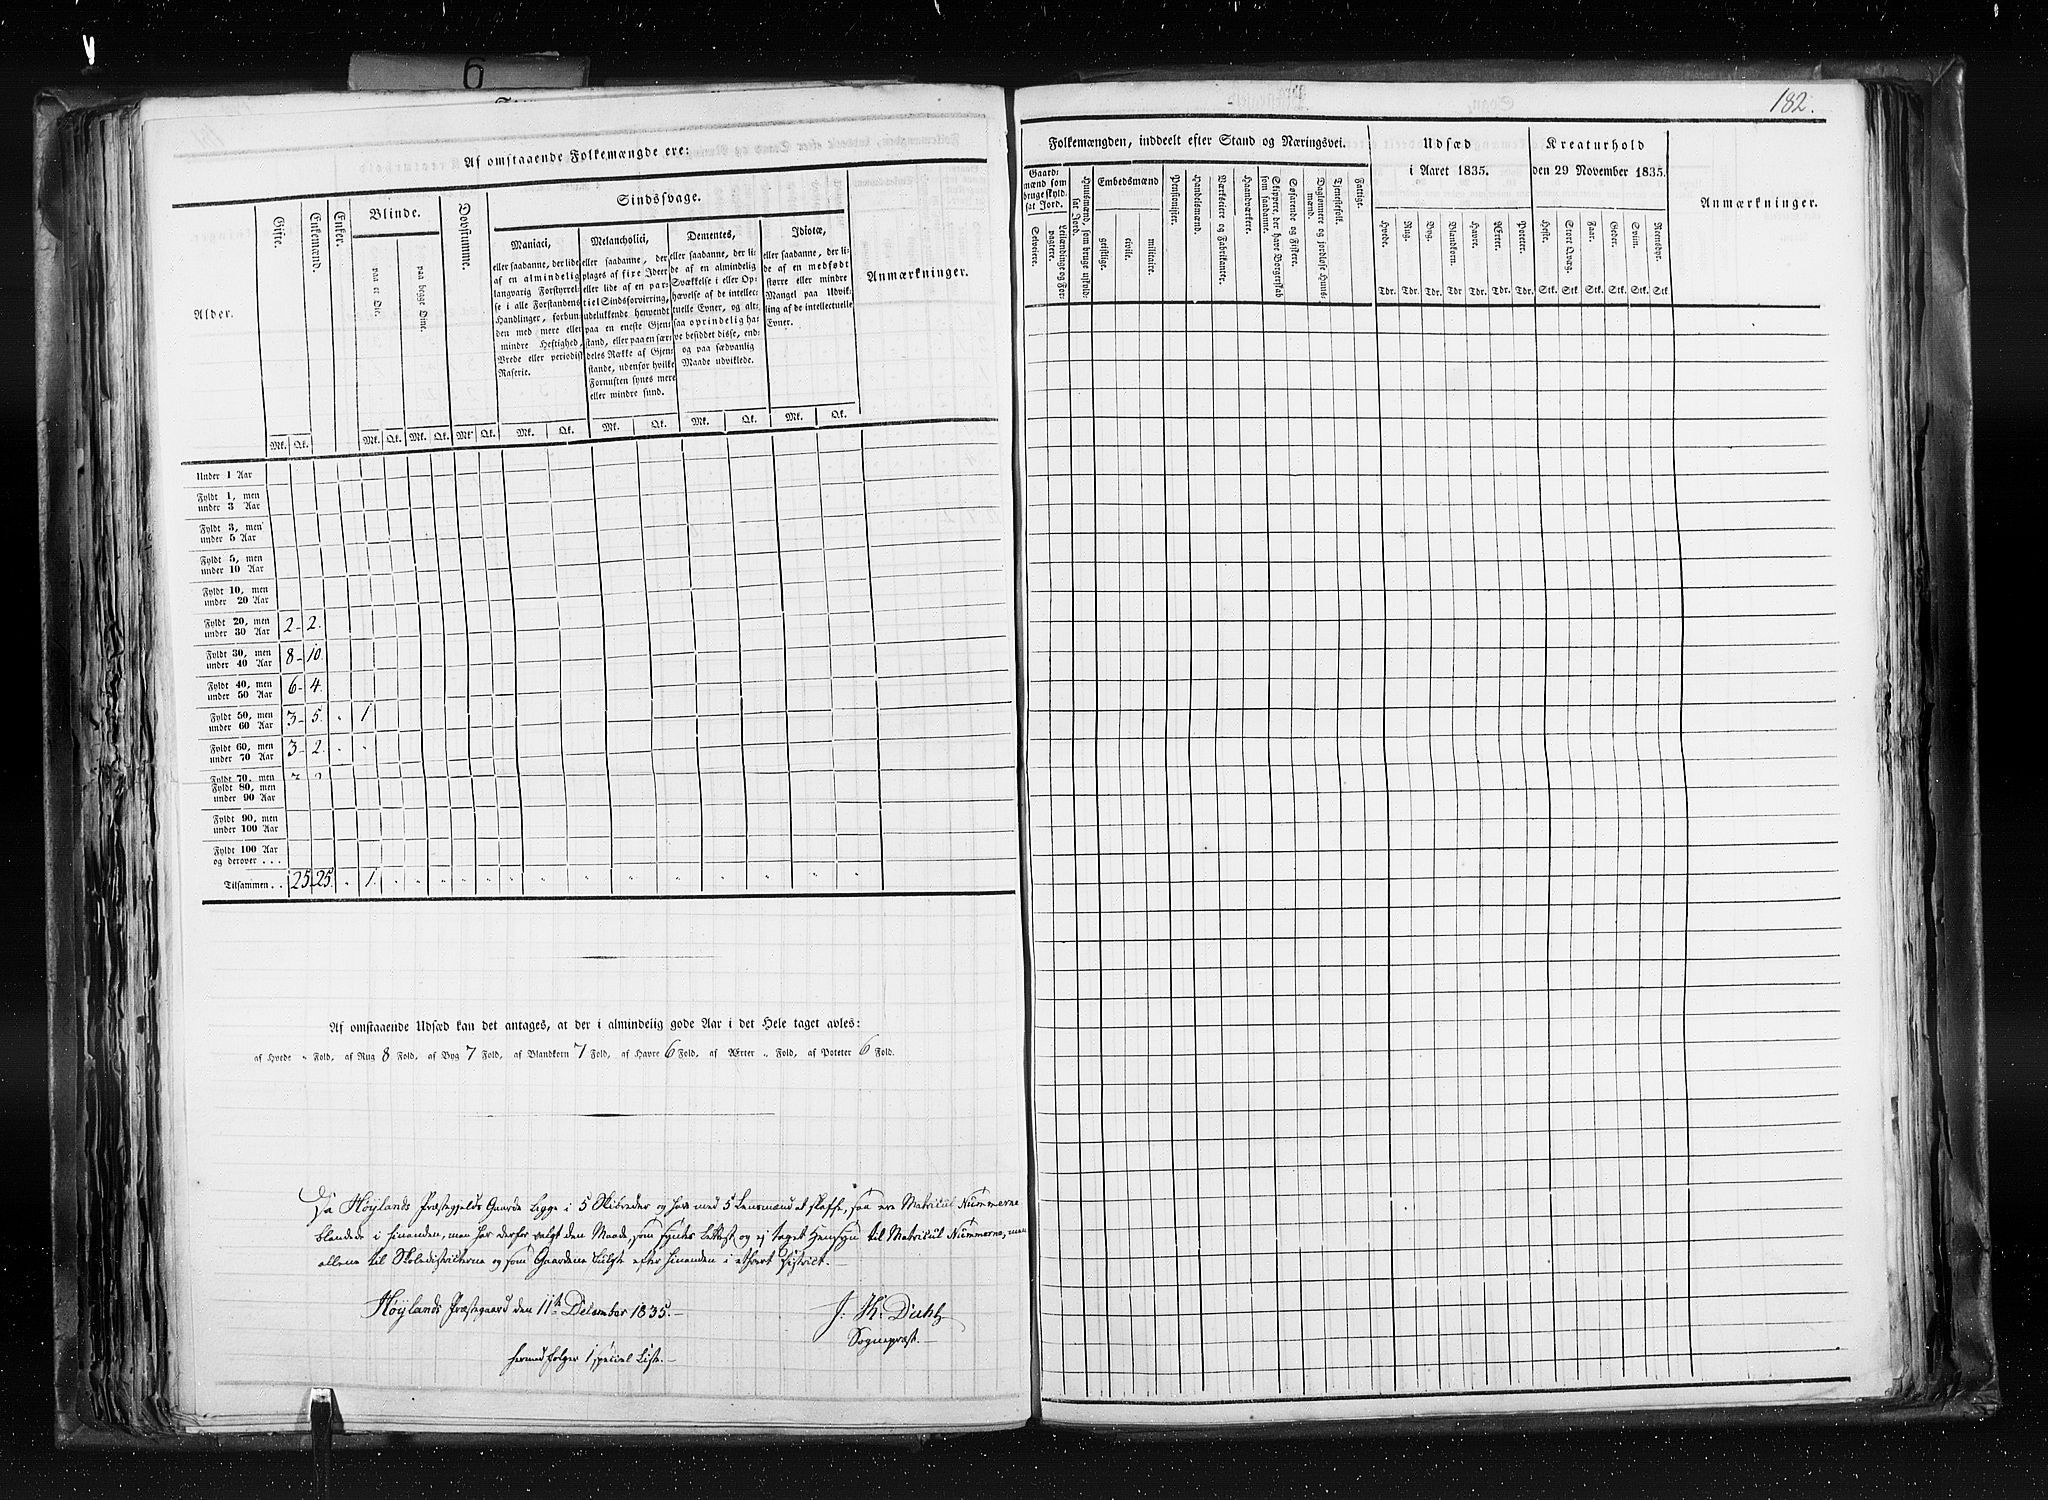 6
Af omstaaende Folkemængde ere:
Alder.
Gifte.
Enkemænd.
Enker.
Blinde.
paa et Øie.
paa begge Øine.
Døvstumme.
Sindssvage.
Maniaci,
eller saadanne, der lide
af en almindelig
langvarig Forstyrrel-
se i alle Forstandens
Handlinger, forbun-
den med mere eller
mindre Heftighed,
Vrede eller periodisk
Raserie.
Melancholici,
eller saadanne, der
plages af fixe Ideer
eller lide af en par-
tiel Sindsforvirring,
udelukkende henvendt
paa en eneste Gjen-
stand, eller paa en sær-
deles Række af Gjen-
stande, udenfor hvilke
Fornuften synes mere
eller mindre sund.
Dementes,
eller saadanne, der li-
de af en almindelig
Svækkelse i eller Op-
hævelse af de intellec-
tuelle Evner, og alt-
saa oprindelig ha-
ve besiddet disse, end-
og paa sædvanlig
Maade udviklede.
Idiotæ,
eller saadanne, der li-
de af en medfødt
større eller mindre
Mangel paa Udvik-
ling af de intellectuelle
Evner.
Anmærkninger.
Mk. Qk. Mk. Qk. Mk. Qk. Mk. Qk. Mk. Qk. Mk. Qk. Mk. Qk. Mk. Qk.
Under 1 Aar
Fyldt 1, men
under 3 Aar
Fyldt 3, men
under 5 Aar
Fyldt 5, men
under 10 Aar
Fyldt 10, men
under 20 Aar
Fyldt 20, men
under 30 Aar 2 - 2.
Fyldt 30, men
under 40 Aar 8 - 10.
Fyldt 40, men
under 50 Aar 6 - 4.
Fyldt 50, men
under 60 Aar 3 - 5. " 1
Fyldt 60, men
under 70 Aar 3 - 2. " "
Fyldt 70, men
Fyldt 80, men
under 90 Aar
Fyldt 90, men
under 100 Aar
Fyldt 100 Aar
og derover . . .
Tilsammen . . 25 25. " 1. " " " " " " " " " " " " " "
Af omstaaende Udsæd kan det antages, at der i almindelig gode Aar i det Hele taget avles:
af Hvede " Fold, af Rug 8 Fold, af Byg 7 Fold, af Blandkorn 7 Fold, af Havre 6 Fold, af Ærter " Fold, af Poteter 6 Fold.
Da Høylands Præstegjelds Gaarde ligge i 5 Skibreder og have med 5 Lensmænd at skaffe, saa ere Matricul Nummerne
blandede i hinanden, man har derfor valgt den Maade, som syntes lettest og ej taget Hensyn til Matricul Nummerne, men
allene til Skoledistricterne og som Gaardene fulgte efter hinanden i ethvert District.-
Høylands Præstegaard den 11te December 1835.-
J. Th. Duhl
Sognepræst.-
hermed følger 1 special Liste.-
182.
Folkemængden, inddeelt efter Stand og Næringsvei.
Gaard-
mænd som
bruge skyld-
sat Jord.
Selveiere.
Leilændinge og For-
pagtere.
Huusmænd, som bruge uskyld-
sat Jord.
Embedsmænd
geistlige.
civile.
militaire.
Pensionister.
Handelsmænd.
Værkseiere
og Fabrikanter.
Haandværkere.
Skippere, der have Borgerskab
som saadanne.
Søfarende og Fi-
skere.
Daglønnere og jordløse Huus-
mænd.
Tjenestefolk.
Fattige.
Udsæd
i Aaret 1835.
Hvede. Rug. Byg. Blandkorn. Havre. Ærter. Poteter.
Tdr. Tdr. Tdr. Tdr Tdr. Tdr. Tdr.
Kreaturhold
den 29 November 1835.
Heste. Stort Qvæg. Faar. Geder. Sviin. Reensdyr.
Stk. Stk Stk. Stk. Stk. Stk
Anmærkninger.